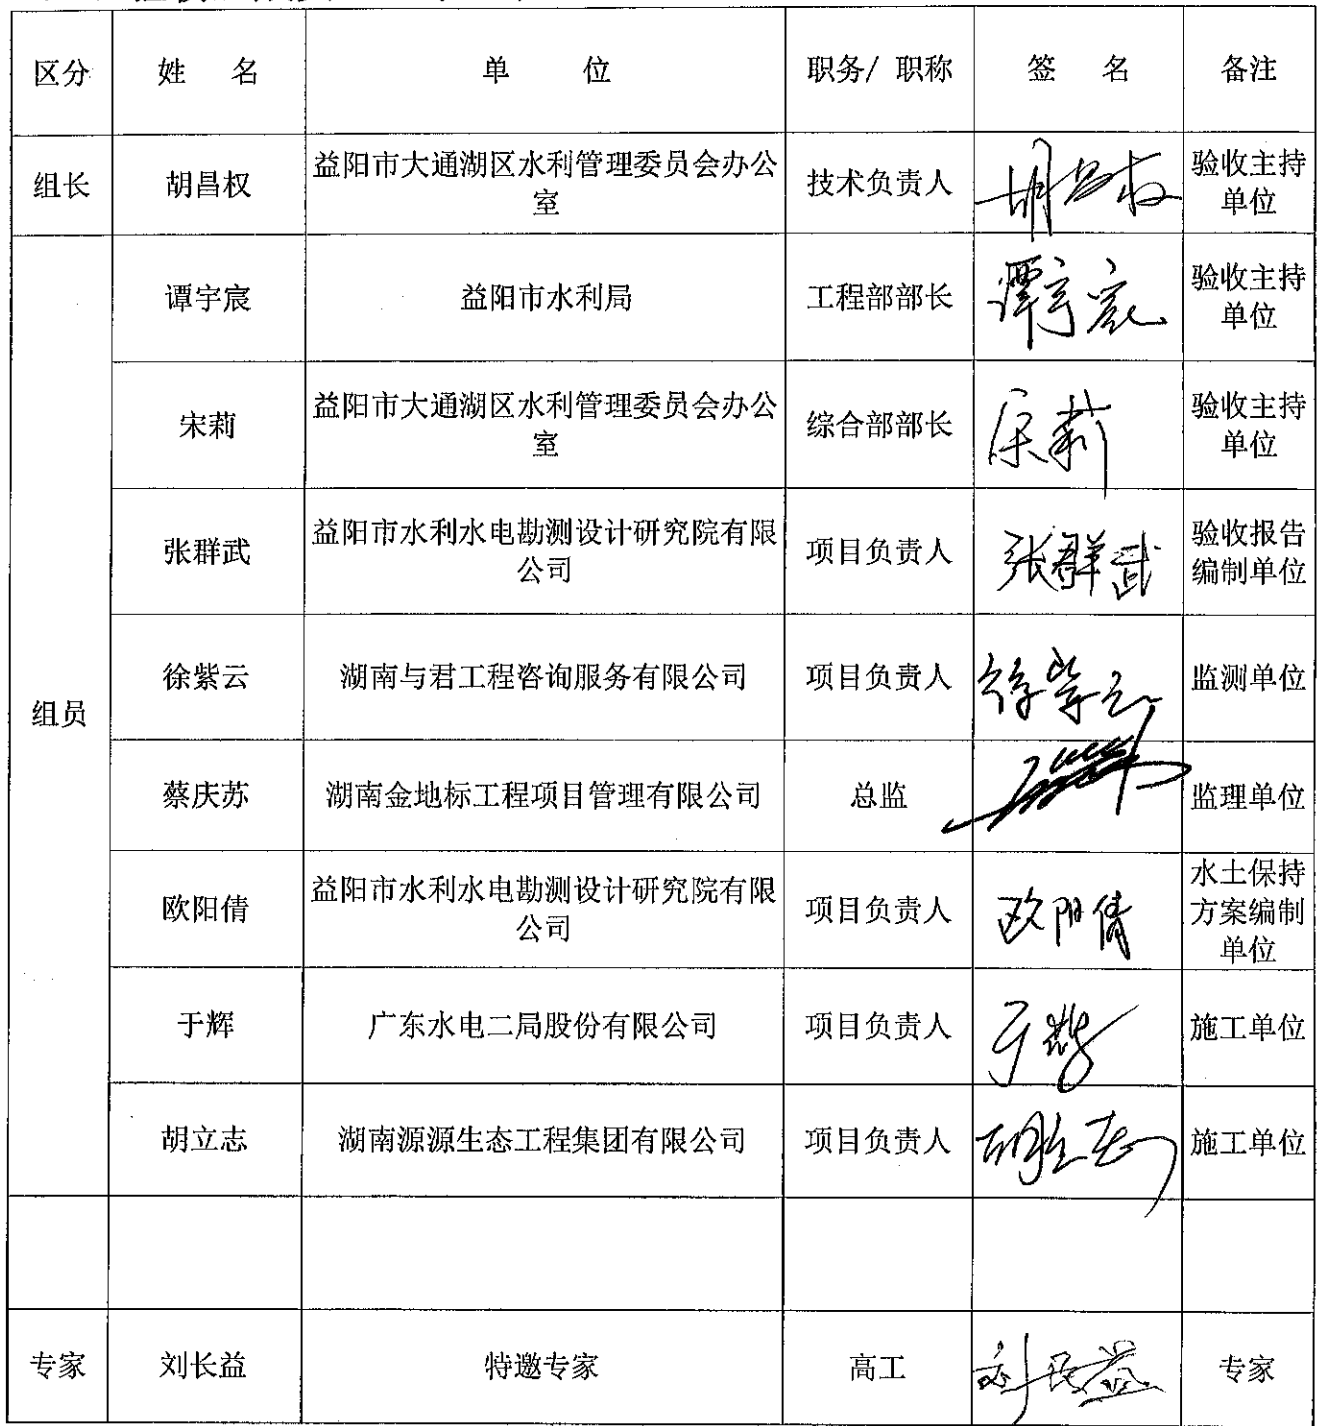 区分 姓 名 单 位 职务/ 职称 签 名 备注
组长 胡昌权 益阳市大通湖区水利管理委员会办公 技术负责人 胡昌权 验收主持
室 单位
谭宇宸 益阳市水利局 工程部部长 谭宇宸 验收主持
单位
宋莉 益阳市大通湖区水利管理委员会办公 综合部部长 宋莉 验收主持
室 单位
张群武 益阳市水利水电勘测设计研究院有限 项目负责人 张群武 验收报告
公司 编制单位
组员 徐紫云 湖南与君工程咨询服务有限公司 项目负责人 徐紫云 监测单位
蔡庆苏 湖南金地标工程项目管理有限公司 总监 监理单位
欧阳倩 益阳市水利水电勘测设计研究院有限 项目负责人 欧阳倩 水土保持
公司 方案编制
单位
于辉 广东水电二局股份有限公司 项目负责人 于辉 施工单位
胡立志 湖南源源生态工程集团有限公司 项目负责人 胡立志 施工单位
专家 刘长益 特邀专家 高工 刘长益 专家